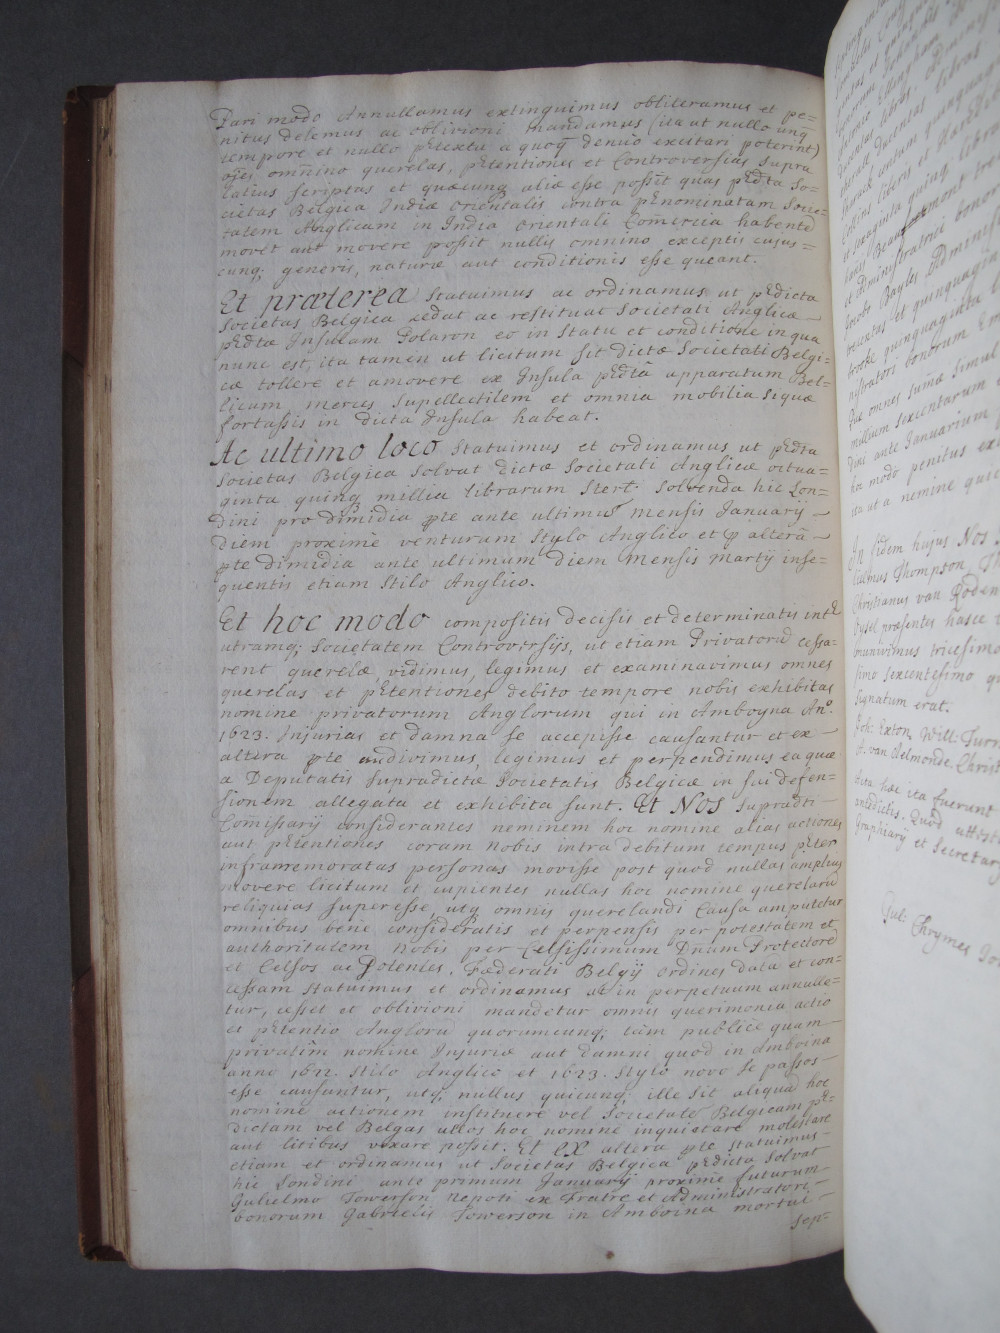 Pari modo Annullamus extinguimus obliteramus et pe=
nitus delemus ac oblivioni mandamus (ita ut nullo unq̃
tempore et nullo p̃textu a quoq̃ denuò excitari poterint)
oẽs omnino querelas, p̃tentiones et Controversias supra
latius scriptas et quæcunq aliæ esse possĩt quas p̃dta So=
cietas Belgica Indiæ Orientalis contra p̃nominatam Socie=
tatem Anglicam in India Orientali Com̃ercia habentẽ
movet aut movere possit nullis omnino exceptis cujus=
cunq; generis, naturæ aut conditionis esse queant.
Et præterea Statuimus ac ordinamus ut p̃dicta
Societas Belgica cedat ac restituat Societati Anglicæ
p̃dtæ Insulam Polaron eo in Statu et conditione in qua
nunc est, ita tamen ut licitum sit dictæ Societati Belgi=
cæ tollere et amovere ex Insula p̃dtâ apparatum Bel=
licum merces supellectilem et omnia mobilia siquæ
fortassis in dicta Insula habeat.
Ac ultimo loco Statuimus et ordinamus ut p̃dta
Societas Belgica solvat dictæ Societati Anglicæ octua=
ginta quinq millia librarum Stert: solvenda hic Lon=
dini pro dimidia pte ante ultimũ mensis January
diem proximè venturum Stylo Anglico et p alterã
pte dimidia ante ultimum diem Mensis Martij inse=
quentis etiam Stilo Anglico.
Et hoc modo compositis decisis et determinatis int̃
utramq; Societatem Controversijs, ut etiam Privatorũ cessa=
rent querelæ vidimus, legimus et examinavimus omnes
querelas et p̃tentiones debito tempore nobis exhibitas
nomine privatorum Anglorum qui in Amboyna Anº.
1623. Injurias et damna se accepisse causantur et ex
altera pte audivimus, legimus et perpendimus ea quæ
a Deputatis supradictæ Societatis Belgicæ in sui defen=
sionem allegata et exhibita sunt. Et Nos supradti
Com̃issarij considerantes neminem hoc nomine alias actiones
aut p̃tentiones coram nobis intra debitum tempus p̃ter
inframemoratas personas movisse post quod nullas amplius
movere licitum et cupientes nullas hoc nomine querelarũ
reliquias superesse, utq omnis querelandi Causa amputetur
omnibus bene consideratis et perpensis per potestatem et
authoritatem nobis per Celsissimum Dnũm Protectorẽ
et Celsos ac Potentes. Fæderati Belgij Ordines datã et con=
cessam statuimus et ordinamus ut in perpetuum annulle=
tur, cesset et oblivioni mandetur omnis querimonia actio
et p̃tentio Anglorũ quorumcunq; tàm publicè quam
privatìm nomine Injuriæ aut damni quod in Amboina
anno 1622. Stilo Anglico et 1623. Stylo novo se passos
esse causantur, utq; nullus quicunq; ille sit aliquã hoc
nomine actionem instituere vel Societatẽ Belgicam p̃=
dictam vel Belgas ullos hoc nomine inquietare molestare
aut litibus vexare possit. Et ex altera pte statuimus
etiam et ordinamus ut Societas Belgica p̃dicta solvat
hic Londini ante primum January proximè futurum
Gulielmo Towerson nepoti ex Fratre et Administratori
bonorum Gabrielis Towerson in Amboina mortui
Sep=
In fidem hujus Nos
Gulmus Thompson, Th
Christianus van Roden
Oysel præsentes hasce
communivimus tricesimo
simo sexcentesimo qu
Signatum erat.
Joh: Exton, Will: Turn
A. van Aelmonde, Christ
Acta hæc ita fuerunt
antedictis. Quod attest
Graphiary et Secretary
Gul: Chrymes